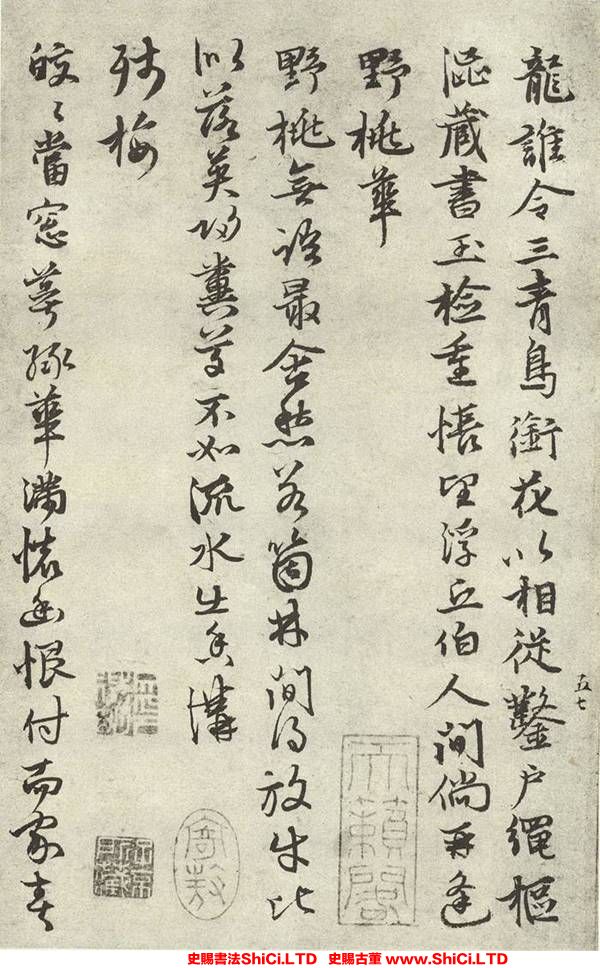 龍誰令三青鳥銜花以相從鑿戶繩樞
澁藏書玉檢重悵望浮丘伯人間倘再逢
野桃華
野桃無語最含愁若箇林間得放牛比
似落英功糞草不如流水出香溝
殘梅
皎〻當窓萼緑華滿懷幽恨付南家春
五七
天籟閣
史賜書法ShiCi.LTD 史賜古董 www.ShiCi.LTD